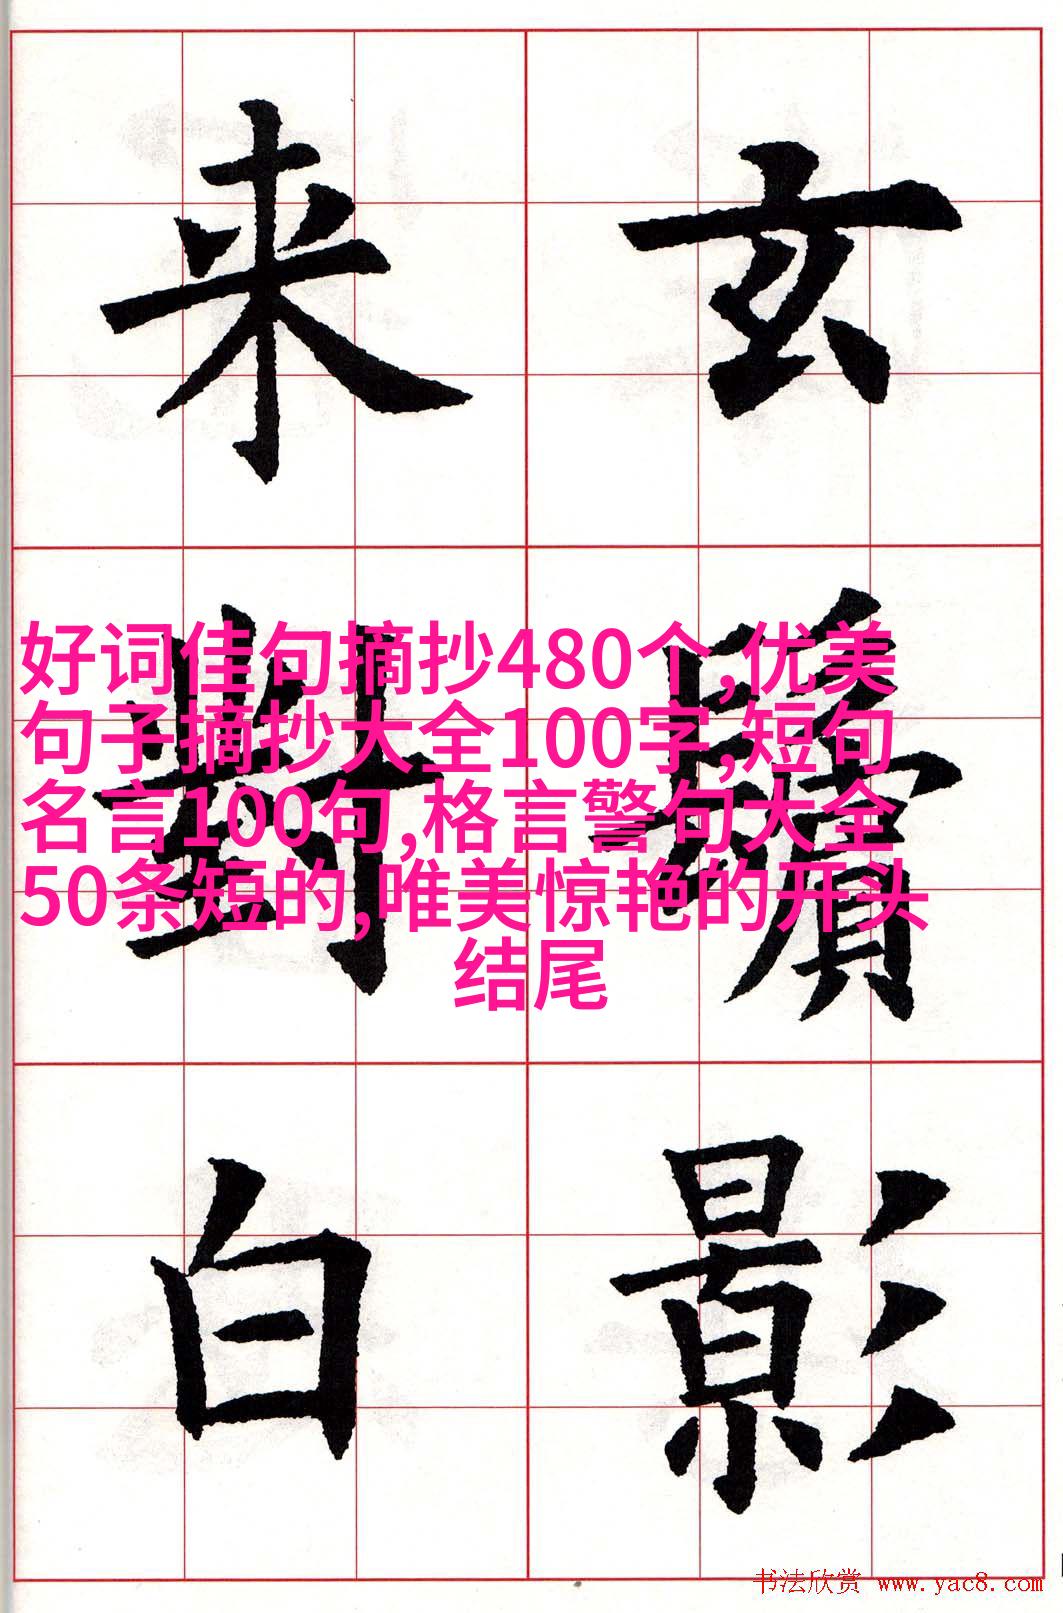 玄鬢影
来對白
好词佳句摘抄480个,优美
句子摘抄大全100字,短句
名言100句,格言警句大全
50条短的,唯美惊艳的开头
结尾
书法欣赏 www.yac8.com